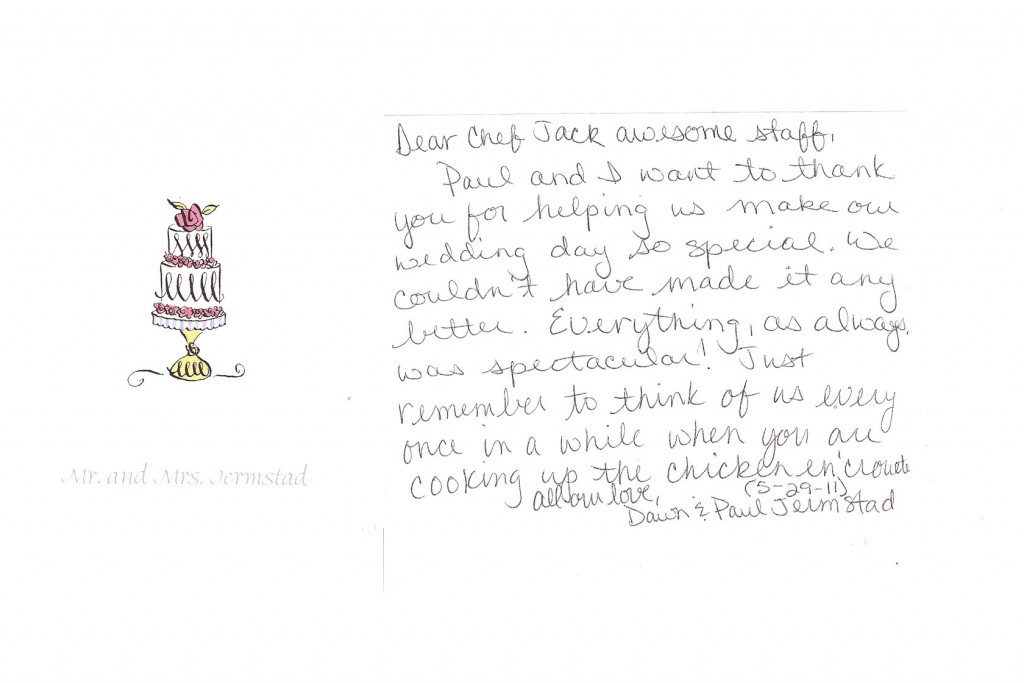 Mr. and Mrs. Jermstad
Dear Chef Jack awesome staff,
Paul and I want to thank
you for helping us make our
wedding day so special. We
couldn't have made it any
better. Everything, as always,
was spectacular! Just
remember to think of us every
once in a while when you are
cooking up the chicken en croute
all our love, (5-29-11)
Dawn & Paul Jermstad